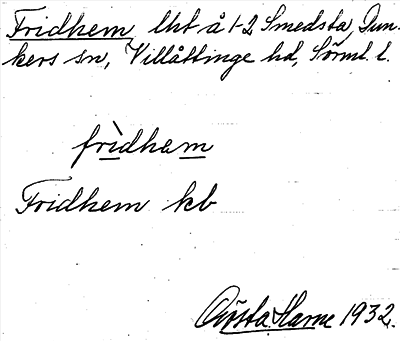 Fridhem lht å 1-2 Smedsta, Dun-
kers sn, Villåttinge hd, Sörml. l.
frìdhem
Fridhem kb
Gösta Harne 1932.